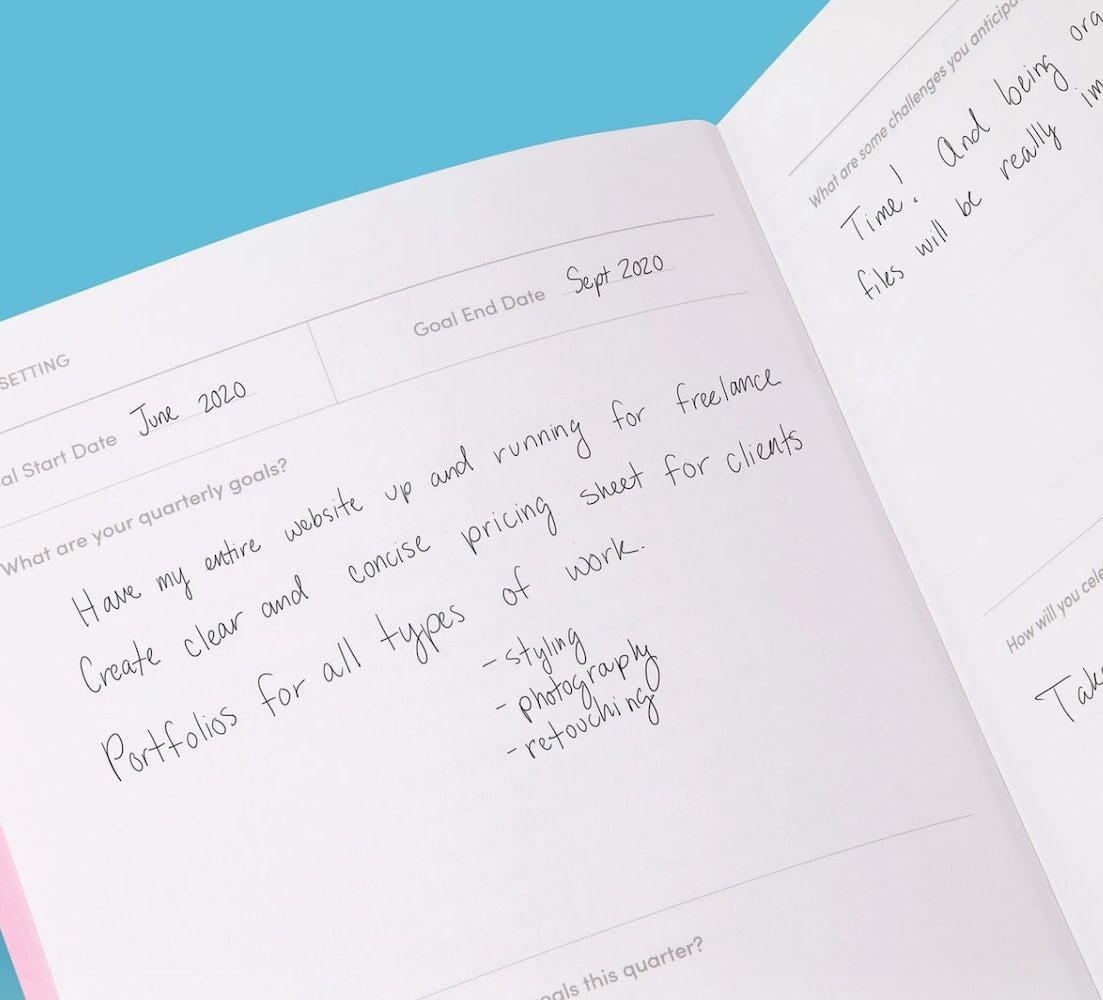 SETTING
Start Date June 2020
Goal End Date Sept 2020
What are your quarterly goals?
Have my entire website up and running for freelance
Create clear and concise pricing sheet for clients
Portfolios for all types of work.
- styling
- photography
- retouching
this quarter?
What are some challenges you
Time! And being
files will be really
How will you